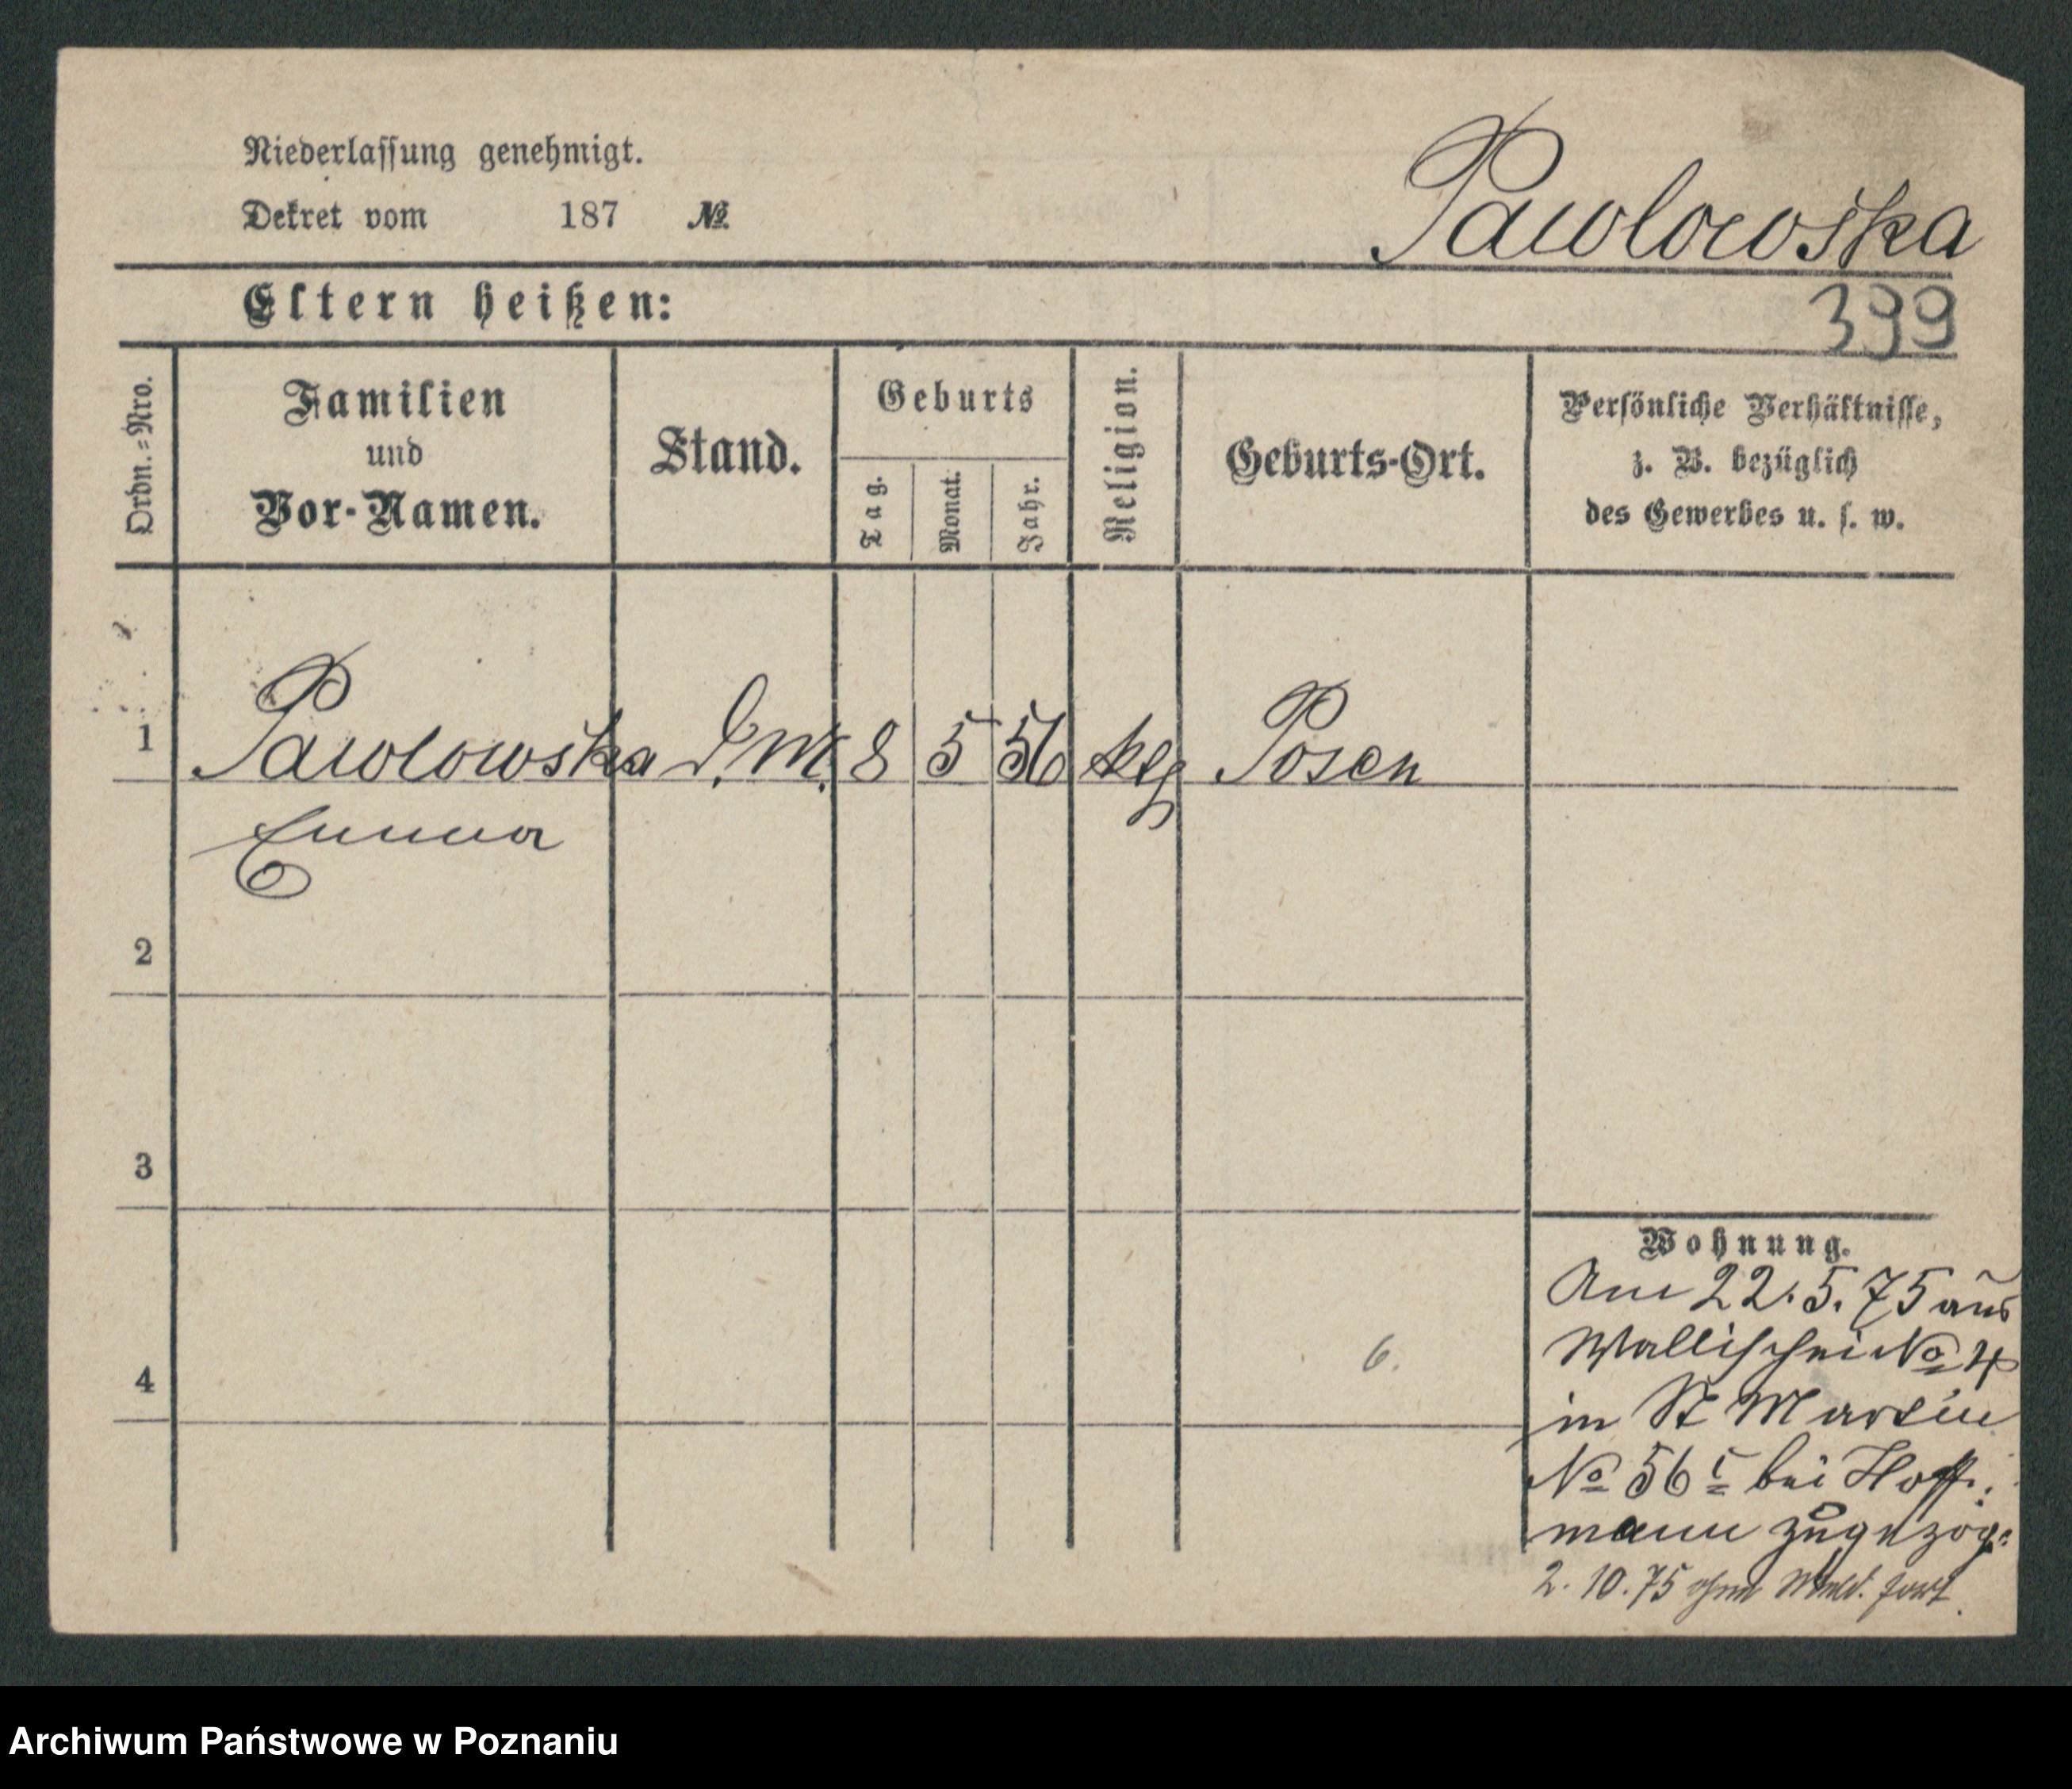 Niederlassung genehmigt.
Dekret vom 187 №.
Pawlowska
Eltern heißen:
399
Ordn.=Nro.
Familien
und
Vor-Namen.
Stand.
Geburts
Tag.
Monat.
Jahr.
Religion.
Geburts-Ort.
Persönliche Verhältnisse,
z. B. bezüglich
des Gewerbes u. s. w.
1 Pawlowska D. M. 8 5 56 ktg Posen
Emma
2
3
Wohnung.
Am 22. 5. 75 aus
Wallischei No 4
6.
4
in St Martin
No 56 bei Hoff:
mann zugezog:
2. 10. 75 ohne Meld. fort.
Archiwum Państwowe w Poznaniu